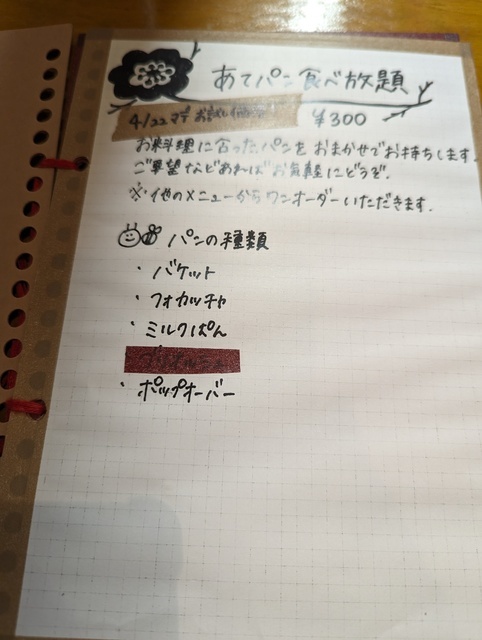 あてパン食べ放題
4/22までお試し価格 ¥300
お料理に合ったパンをおまかせでお持ちします
ご要望などあればお気軽にどうぞ。
※他のメニューからワンオーダーいただきます。
パンの種類
・バケット
・フォカッチャ
・ミルクぱん
・ポップオーバー